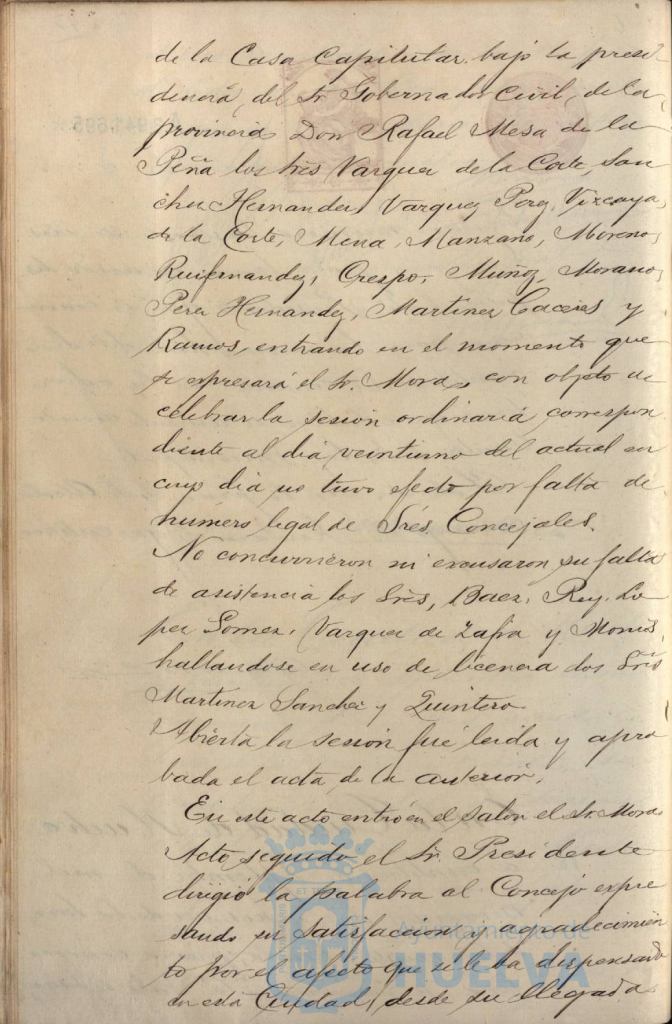 de la Casa Capitular bajo la presi
dencia, del Sr. Gobernador Civil, de la
provincia Don Rafael Mesa de la
Peña los tres Vazquez de la Corte, San
chez Hernandez, Vazquez Perez, Vizcaya,
de la Corte, Mena, Manzano, Moreno,
Ruifernandez, Crespo, Muñoz, Morano,
Perez Hernandez, Martinez Caceres y
Ramos, entrando en el momento que
se expresará el Sr. Mora, con objeto de
celebrar la sesion ordinaria correspon
diente al dia veintiuno del actual en
cuyo dia no tuvo efecto por falta de
número legal de Sres. Concejales.
No concurrieron ni excusaron su falta
de asistencia los Sres, Baez, Rey, Lo
pez Gomez, Vazquez de Zafra y
hallandose en uso de licencia los Sres
Martinez Sanchez y Quintero
Abierta la sesion fué leida y apro
bada el acta de la anterior.
En este acto entró en el salon el Sr. Mora
Acto seguido el Sr. Presidente
dirigió la palabra al Concejo expre
sando su satisfaccion y agradecimien
to por el afecto que se le ha dispensado
en esta Ciudad, desde su llegada
Ayuntamiento de
HUELVA